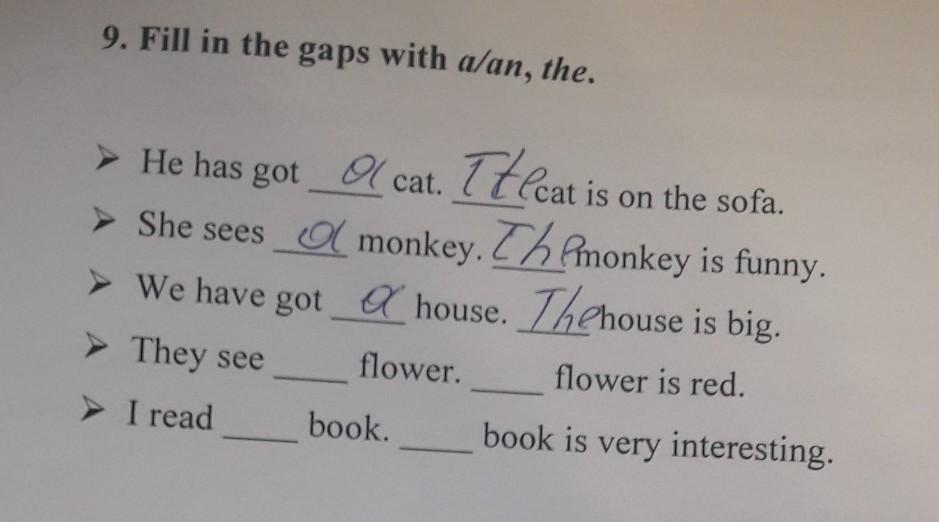 9. Fill in the gaps with a/an, the.
➤ He has got a cat. The cat is on the sofa.
➤ She sees a monkey. The monkey is funny.
➤ We have got a house. The house is big.
➤ They see ____ flower. ____ flower is red.
➤ I read ____ book. ____ book is very interesting.